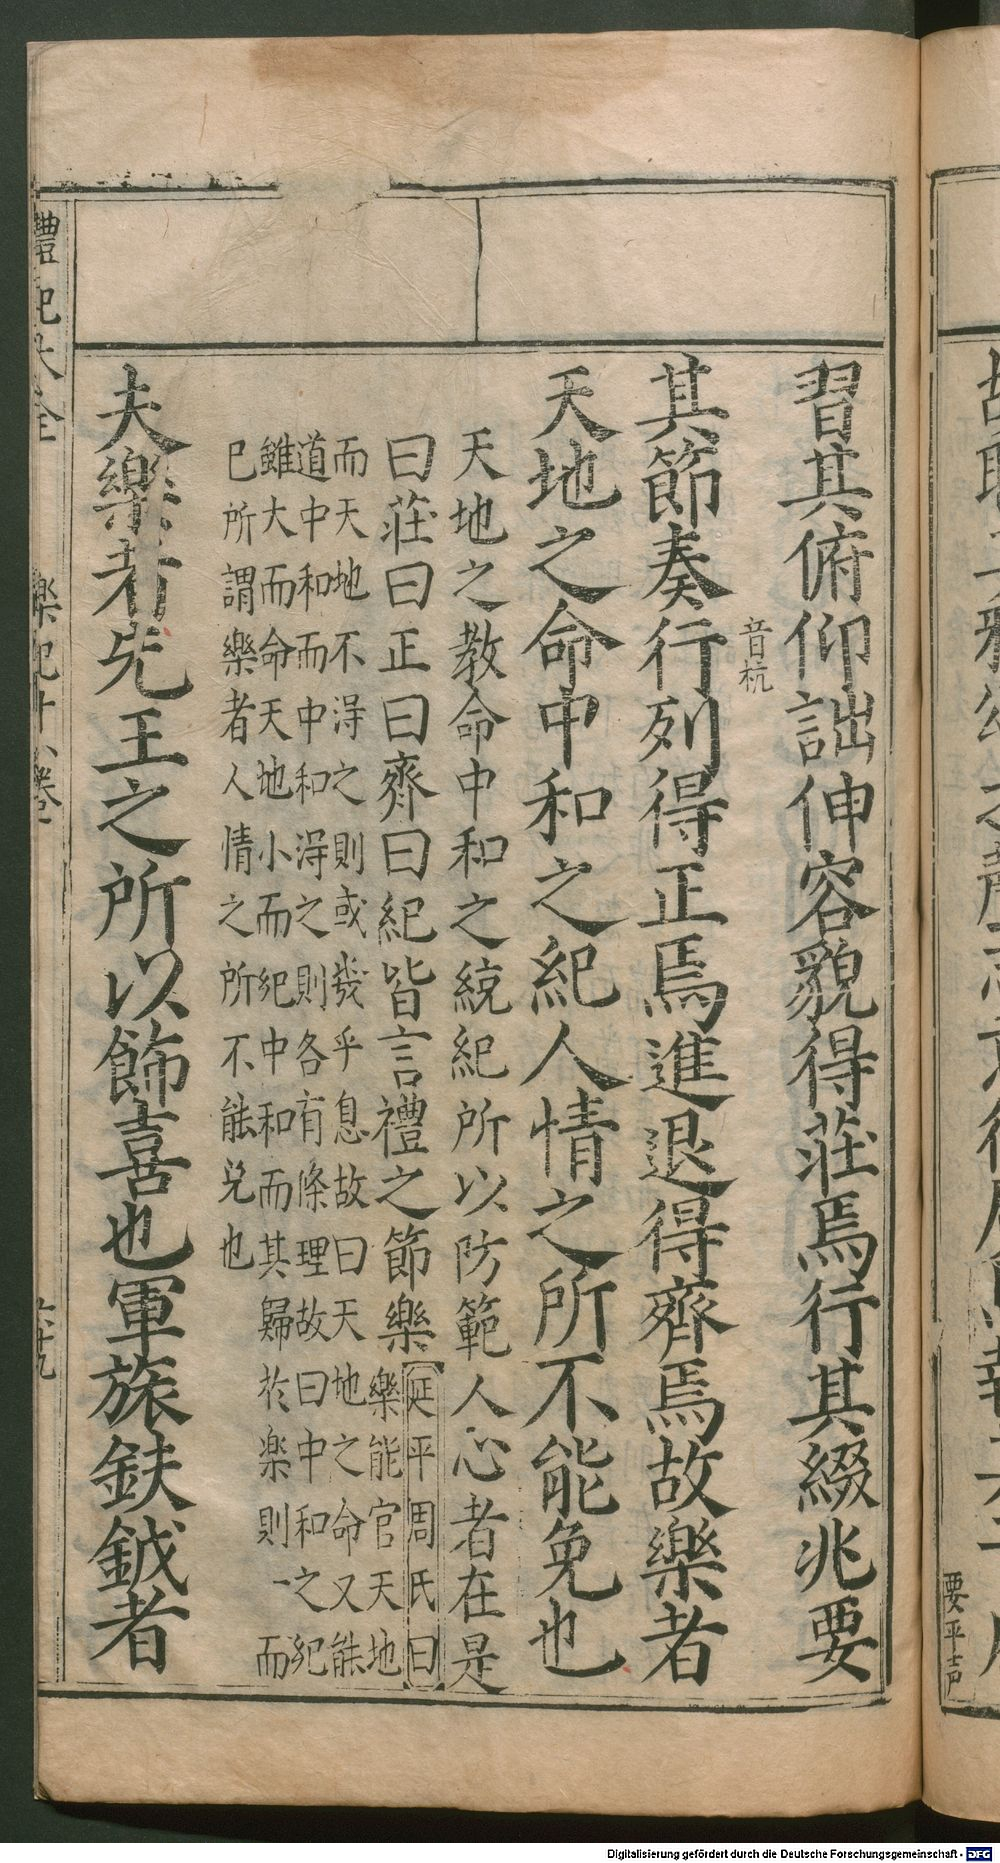 習其俯仰詘伸容貌得莊焉行其綴兆要
其節奏行列得正焉進退得齊焉故樂者
音杭
天地之命中和之紀人情之所不能免也
天地之教命中和之統紀所以防範人心者在是
曰莊曰正曰齊曰紀皆言禮之節樂
延平周氏曰
樂能官天地
而天地不淂之則或幾乎息故曰天地之命又能
道中和而中和淂之則各有條理故曰中和之紀
雖大而命天地小而紀中和而其歸於楽則一而
已所謂樂者人情之所不能免也
夫樂者先王之所以飾喜也軍旅鈇鉞者
禮記大全
樂記十八卷
六十九
要平声
Digitalisierung gefördert durch die Deutsche Forschungsgemeinschaft - DFG